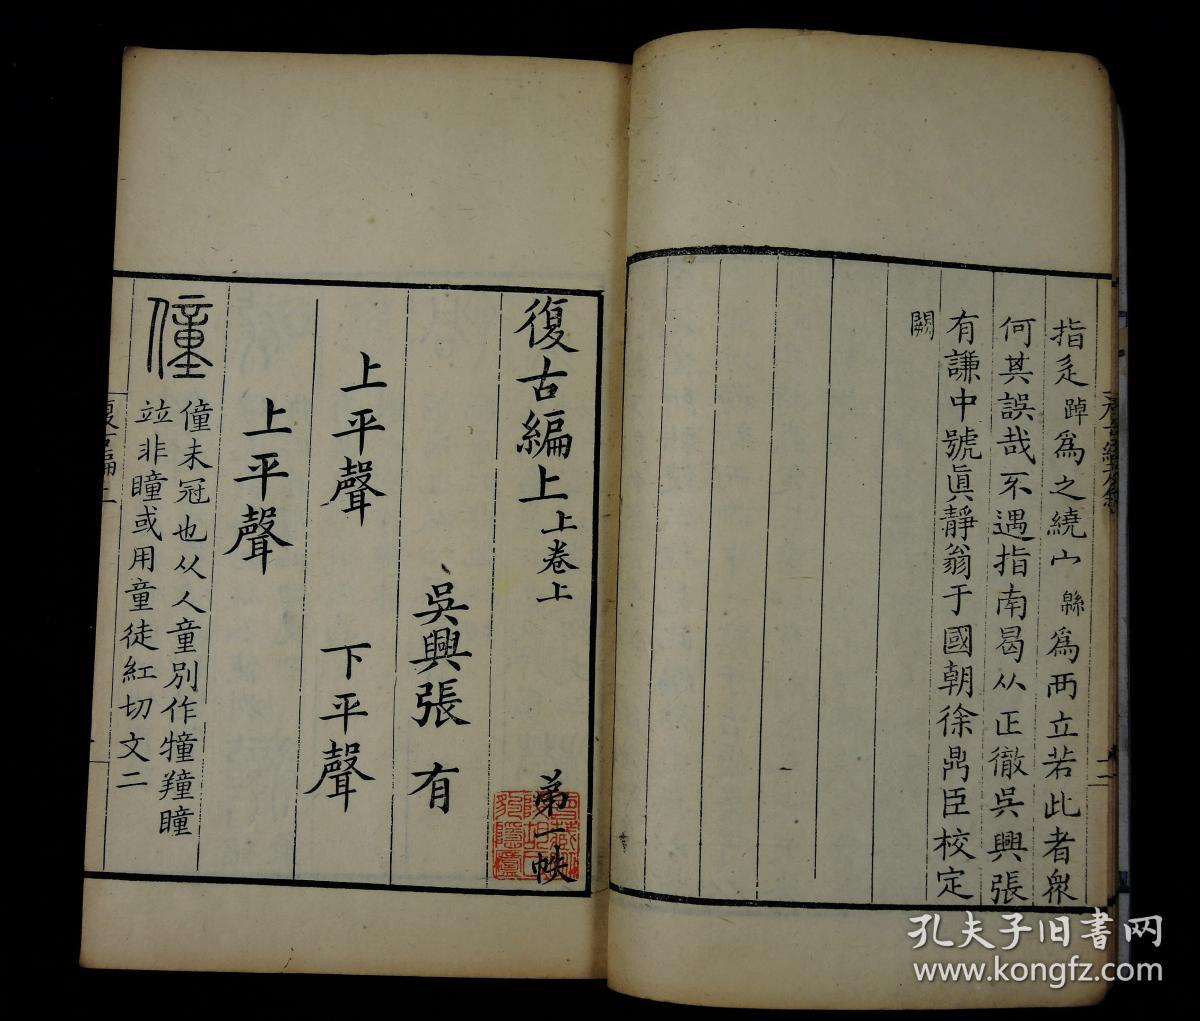 指辵踔爲之繞宀緜爲两立若此者衆
何其誤哉不遇指南曷从正徹吳興張
有謙中號眞靜翁于國朝徐鼎臣校定
闕
復古編上上卷上 弟一帙
吳興張 有
上平聲 下平聲
上平聲
僮
僮未冠也从人童別作犝羵瞳
竝非瞳或用童徒紅切文二
復古編上
孔夫子旧书网
www.kongfz.com